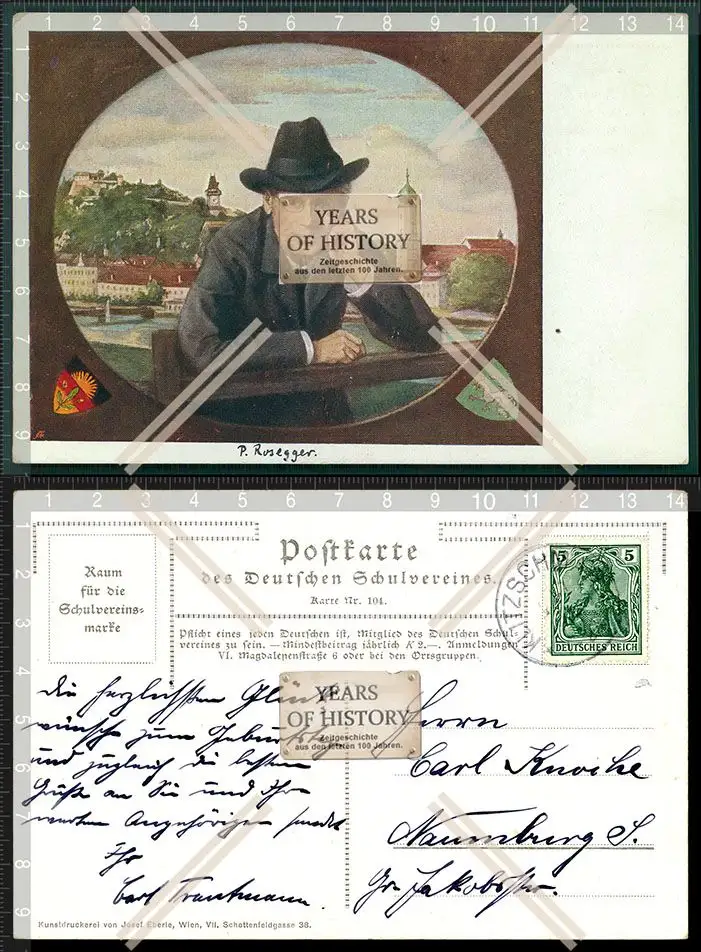 1 2 3 4 5 6 7 8 9 10 11 12 13 14
1
2
3
4
5
6
7
8
9
YEARS
OF HISTORY
Zeitgeschichte
aus den letzten 100 Jahren.
P. Rosegger.
1 2 3 4 5 6 7 8 9 10 11 12 13 14
1
2
3
4
5
6
7
8
9
Postkarte
des Deutschen Schulvereines.
Karte Nr. 104.
Raum
für die
Schulvereins-
marke
Pflicht eines jeden Deutschen ist, Mitglied des Deutschen Schul-
vereines zu sein. — Mindestbeitrag jährlich K 2.—. Anmeldungen
VI. Magdalenenstraße 6 oder bei den Ortsgruppen.
5 5
DEUTSCHES REICH
Die herzlichsten Glück
wünsche zum Geburtstag
und zugleich die besten
Grüße an Sie und Ihre
werten Angehörigen sendet
Ihr
Carl Trautmann.
YEARS
OF HISTORY
Zeitgeschichte
aus den letzten 100 Jahren.
Herrn
Carl Knoche
Naumburg S.
Gr. Jakobsstr.
Kunstdruckerei von Josef Eberle, Wien, VII. Schottenfeldgasse 38.